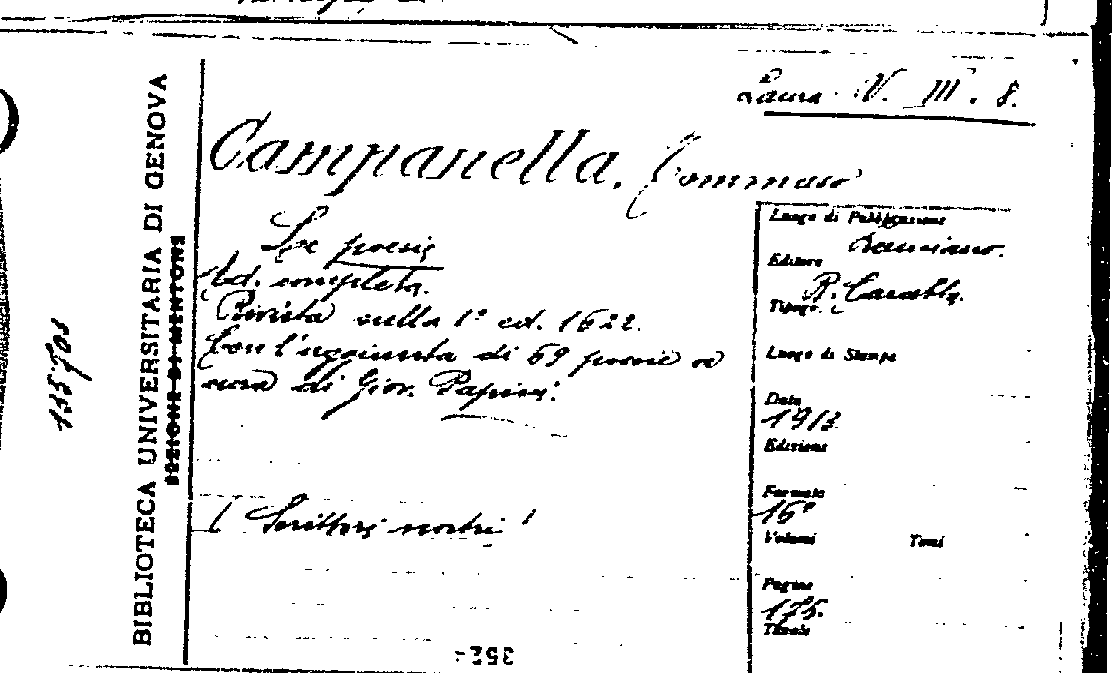 Laura V. III. 8.
Campanella, Tommaso
Le poesie
Ed. completa.
Rivista sulla 1ª ed. 1622.
Con l'aggiunta di 69 poesie a
cura di Giov. Papini.
( Scrittori nostri )
BIBLIOTECA UNIVERSITARIA DI GENOVA
SEZIONE DI MENTONE
Luogo di Pubblicazione
Lanciano.
Editore
R. Carabba.
Tipogr.
Luogo di Stampa
Data
1913
Edizione
Formato
16º
Volumi Tomi
Pagine
175.
Tavole